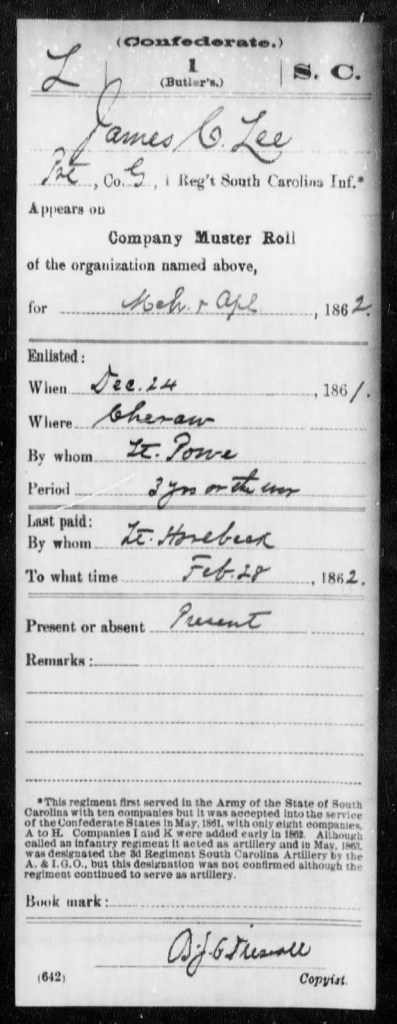 (Confederate.)
L | 1 | S. C.
(Butler's.)
James C. Lee
Pvt, Co. G, 1 Reg't South Carolina Inf.*
Appears on
Company Muster Roll
of the organization named above,
for Mch. & Apl, 1862.
Enlisted:
When Dec. 24, 1861.
Where Cheraw
By whom Lt. Powe
Period 3 yrs or the war
Last paid:
By whom Lt. Horlbeck
To what time Feb. 28, 1862.
Present or absent Present
Remarks:
*This regiment first served in the Army of the State of South
Carolina with ten companies but it was accepted into the service
of the Confederate States in May, 1861, with only eight companies,
A to H. Companies I and K were added early in 1862. Although
called an infantry regiment it acted as artillery and in May, 1863,
was designated the 3d Regiment South Carolina Artillery by the
A. & I. G. O., but this designation was not confirmed although the
regiment continued to serve as artillery.
Book mark:
(642) Copyist.